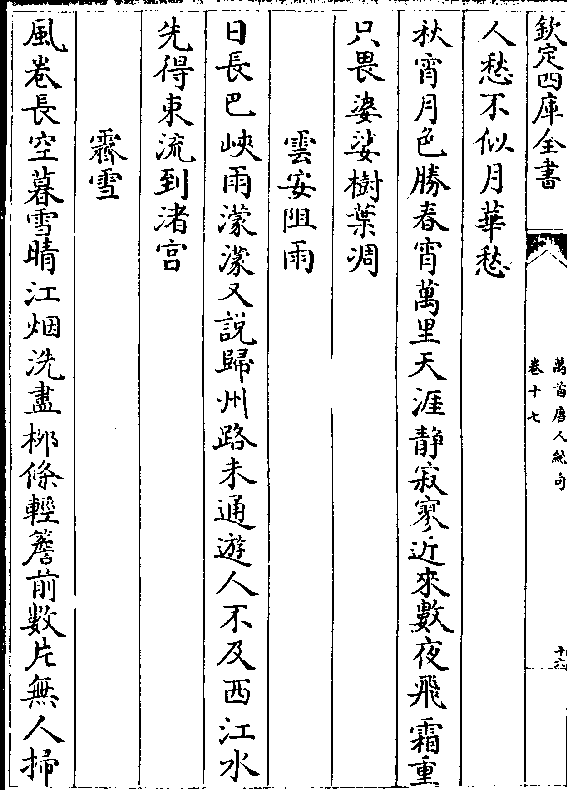 欽定四庫全書
萬首唐人絶句
卷十七
十六
人愁不似月華愁
秋宵月色勝春宵萬里天涯静寂寥近來數夜飛霜重
只畏婆娑樹葉凋
雲安阻雨
日長巴峽雨濛濛又説歸州路未通遊人不及西江水
先得東流到渚宫
霽雪
風卷長空暮雪晴江烟洗盡桞條輕簷前數片無人掃